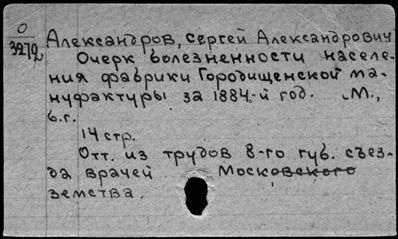 0
3272
Александров, Сергей Александрович
Очерк болезненности населе-
ния фабрики Городищенской ма-
нуфактуры за 1884-й год. М.,
б.г.
14 стр.
Отт. из трудов 8-го губ. съез-
да врачей Московского
земства.